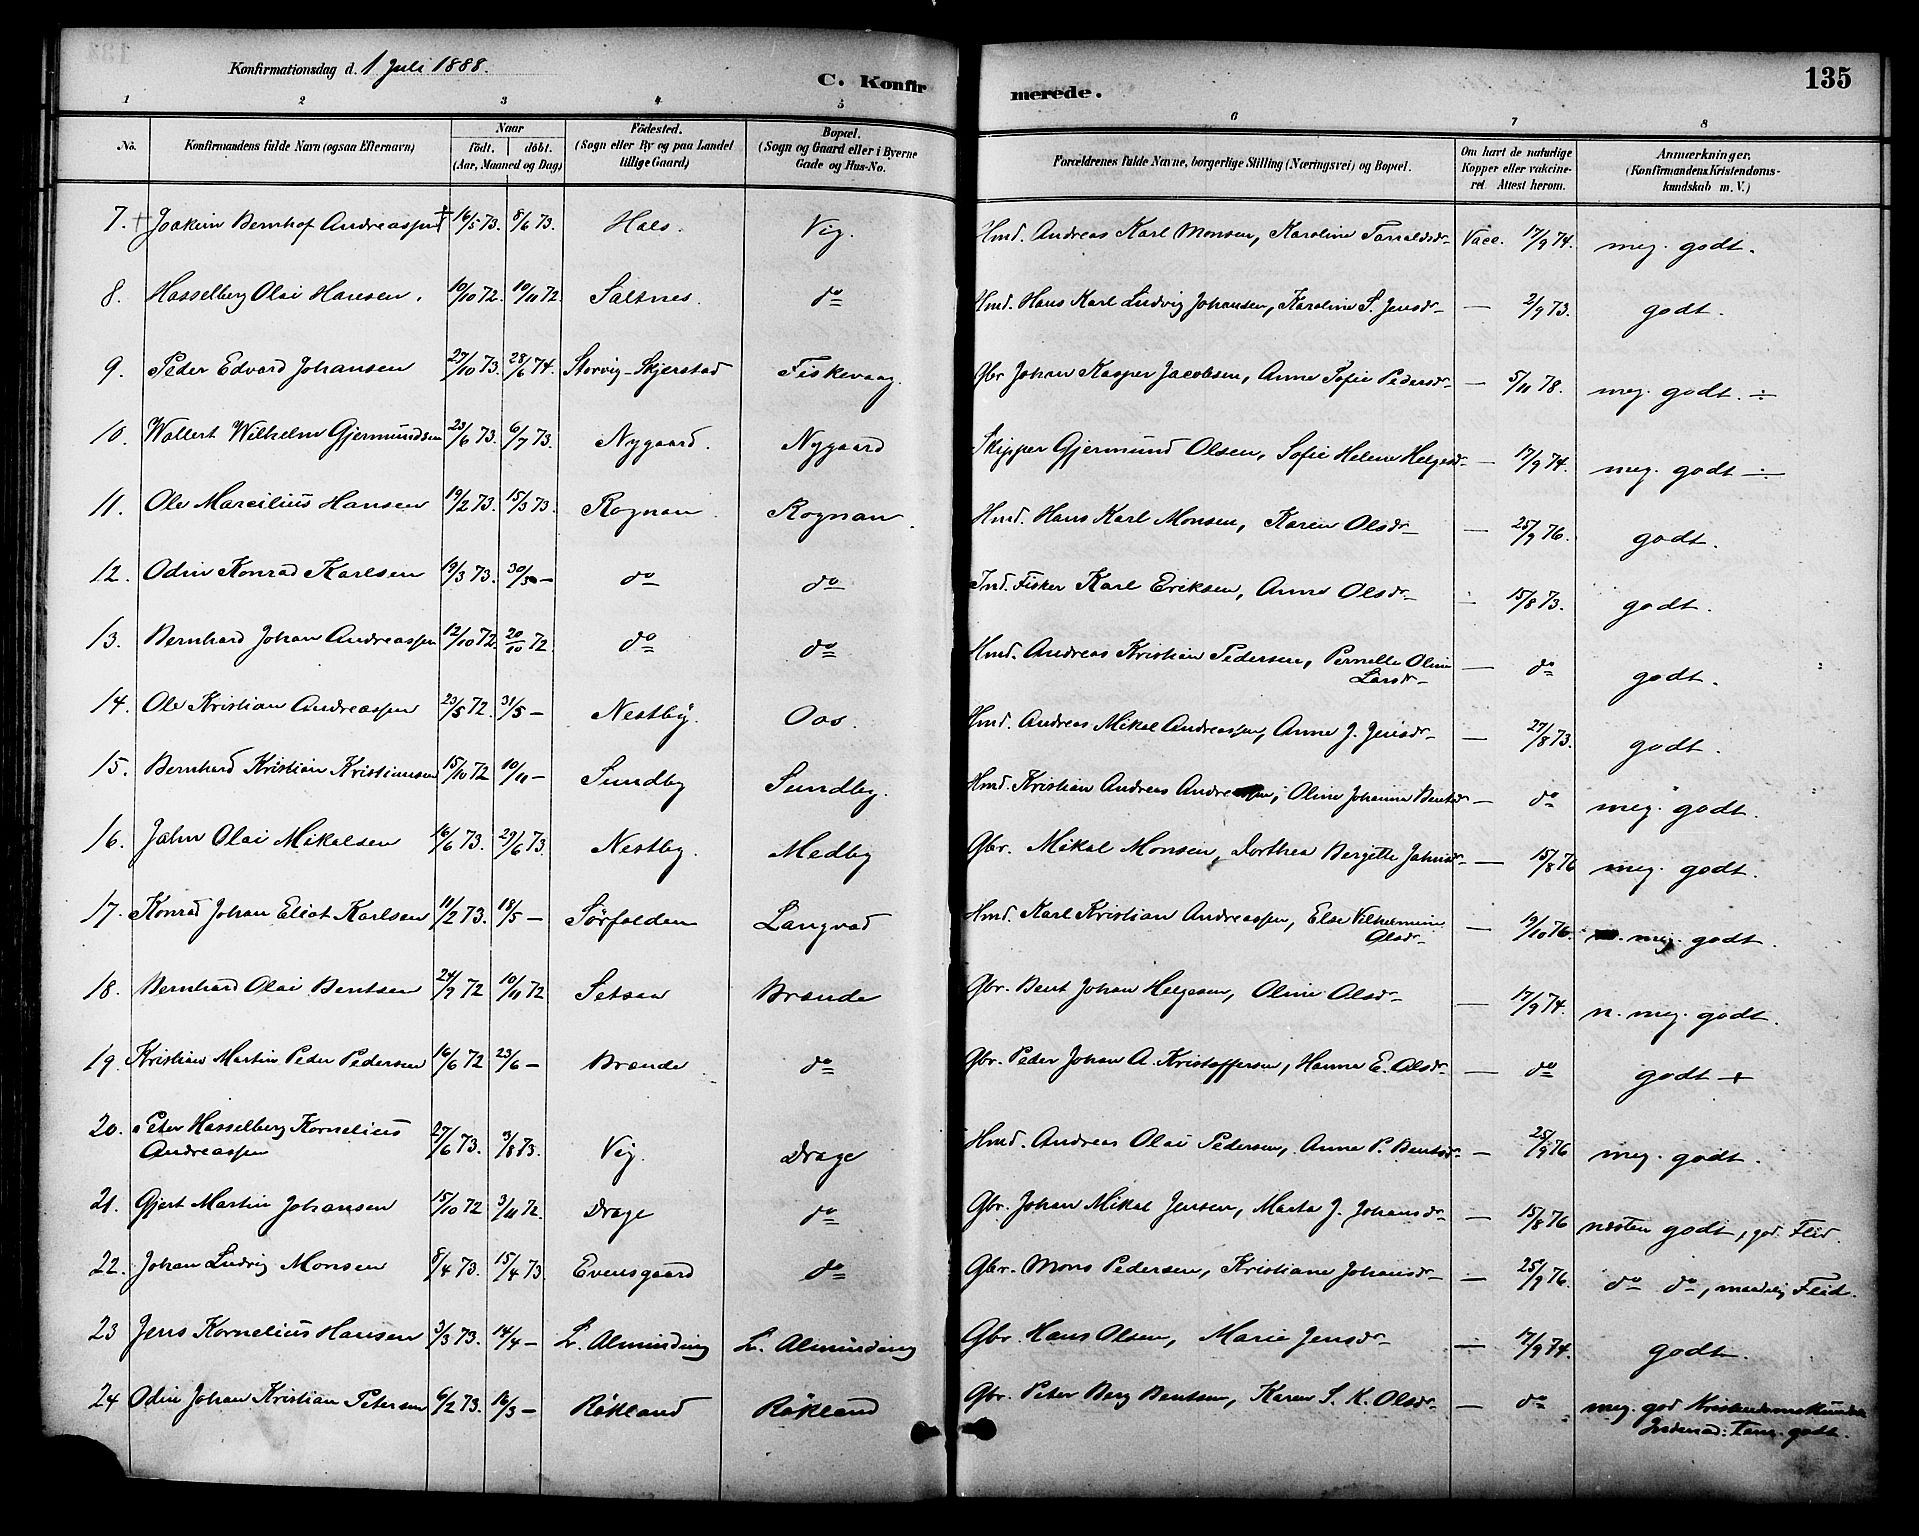 Konfirmationsdag d. 1 Juli 1888.
C. Konfirmerede.
135
1 2 3 4 5 6 7 8
No. Konfirmandens fulde Navn (ogsaa Efternavn) Naar födt. döbt. (Aar, Maaned og Dag) Födested. (Sogn eller By og paa Landet tillige Gaard) Bopæl. (Sogn og Gaard eller i Byerne Gade og Hus-No. Forældrenes fulde Navne, borgerlige Stilling (Næringsvei) og Bopæl. Om havt de naturlige Kopper eller vakcineret. Attest herom. Anmærkninger. (Konfirmandens Kristendomskundskab m. V.)
7. Joakim Bernhof Andreassen 16/5 73. 8/6 73. Hals. Vig. Hmd. Andreas Karl Monsen, Karoline Tarraldsdr Vacc. 17/9 74. meg. godt.
8. Hasselberg Olai Hansen. 10/10 72. 10/11 72. Saltnes. do Hmd. Hans Karl Ludvig Johansen, Karoline S. Jensdr — 2/9 73. godt.
9. Peder Edvard Johansen 27/10 73. 28/6 74. Storvig-Skjerstad Fiskevaag. Gbr Johan Kasper Jacobsen, Anne Sofie Pedersdr — 5/11 78. meg. godt. ÷
10. Wallert Wilhelm Gjermundsen 23/6 73. 6/7 73. Nygaard. Nygaard Skipper Gjermund Olsen, Sofie Helene Helgesdr — 17/9 74. meg. godt ÷
11. Ole Marcilius Hansen 19/2 73. 15/3 73. Rognan. Rognan. Hmd. Hans Karl Monsen, Karen Olsdr — 25/9 76. godt.
12. Odin Konrad Karlsen 19/3 73. 30/3 — do do Ind. Fisker Karl Eriksen, Anne Olsdr — 15/8 73. godt.
13. Bernhard Johan Andreassen 12/10 72. 20/10 72. do do Hmd. Andreas Kristian Pedersen, Pernelle Oline Larsdr — do godt.
14. Ole Kristian Andreassen 23/5 72. 31/5 — Nestby. Oas. Hmd. Andreas Mikal Andreassen, Anne J. Jensdr — 27/8 73. godt.
15. Bernhard Kristian Kristiansen 15/10 72 10/11 — Sundby Sundby. Hmd. Kristian Andreas Andreassen, Oline Johanna Bentsdr — do meg. godt.
16. Jahn Olai Mikalsen 16/6 73. 29/6 73. Nestby. Medby Gbr. Mikal Monsen, Dorthea Bergitte Jahnsdr — 15/8 76 meg. godt.
17. Konrad Johan Eliot Karlsen 11/2 73. 18/5 — Sørfolden Langvad Hmd. Karl Kristian Andreassen, Else Vilhelmine Olsdr — 19/10 76. meg. godt.
18. Bernhard Olai Bentsen 24/9 72 10/11 72 Setsaa Brænde Gbr. Bent Johan Helgesen, Oline Olsdr — 17/9 74. n. meg. godt.
19. Kristian Martin Peder Pedersen 16/6 72 23/6 — Brænde do Gbr. Peder Johan A. Kristoffersen, Hanna E. Olsdr — do godt +
20. Peter Hasselberg Kornelius Andreassen 27/6 73. 3/8 73. Vig. Drage Hmd. Andreas Olai Pedersen, Anne P. Bentsdr — 25/9 76 meg. godt.
21. Gjert Martin Johansen 15/10 72 3/11 72. Drage do Gbr. Johan Mikal Jensen, Marta J. Johansdr — 15/8 76 næsten godt, god. Flid.
22. Johan Ludvig Monsen 8/4 73. 15/4 73. Evensgaard do Gbr. Mons Pedersen, Kristiane Johansdr — 25/9 76. do do, maadelig Flid.
23 Jens Kornelius Hansen 3/3 73. 14/4 — L. Alminding L. Alminding Gbr. Hans Olsen, Marie Jensdr — 17/9 74. godt.
24 Odin Johan Kristian Petersen 6/2 73. 16/3 — Røkland Røkland Gbr. Peter Berg Bentsen, Karen S. K. Olsdr — do meg. god Kristendomskundsk
godt.